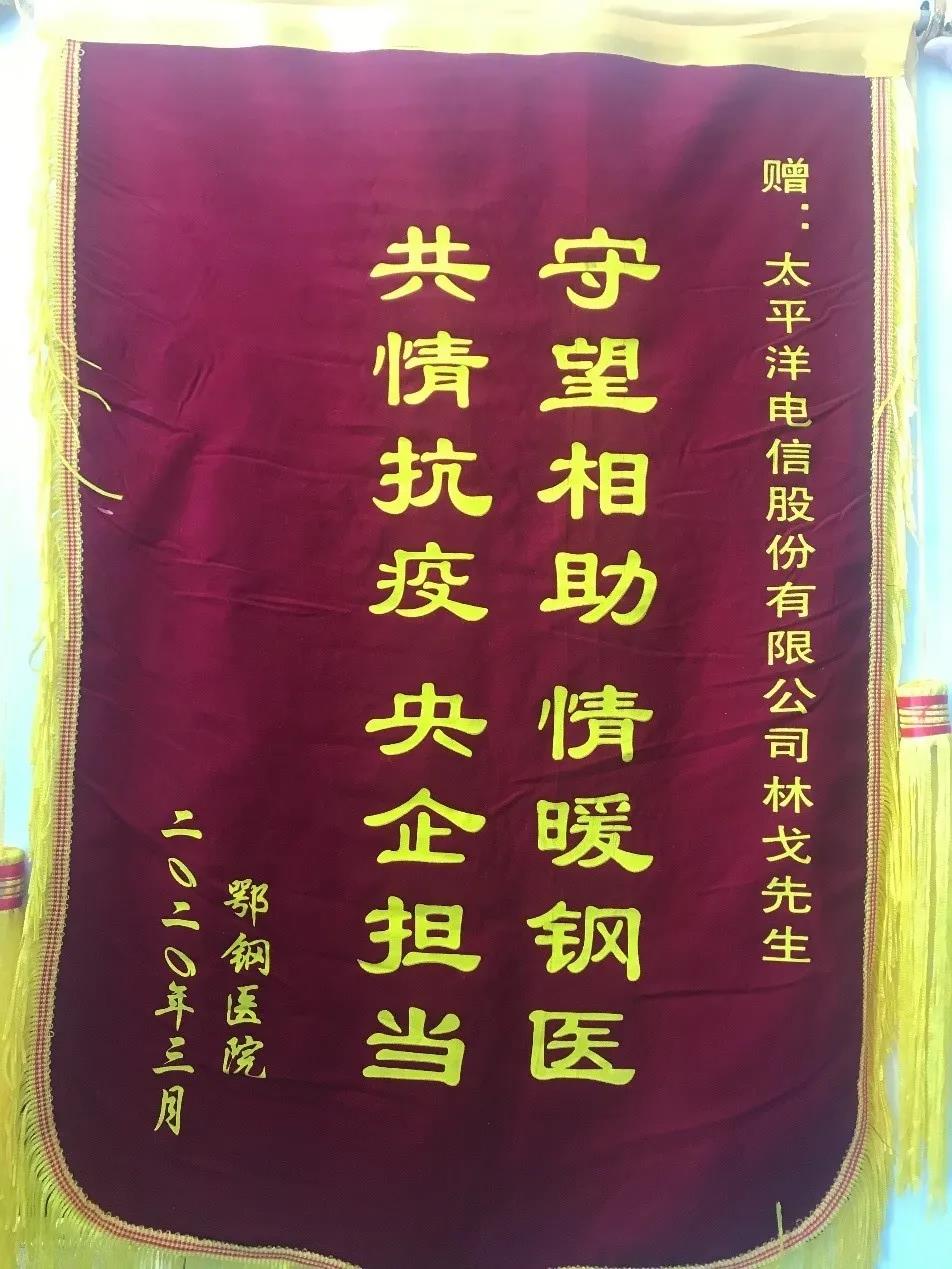 赠：太平洋电信股份有限公司林戈先生
守望相助 情暖钢医
共情抗疫 央企担当
鄂钢医院
二〇二〇年三月